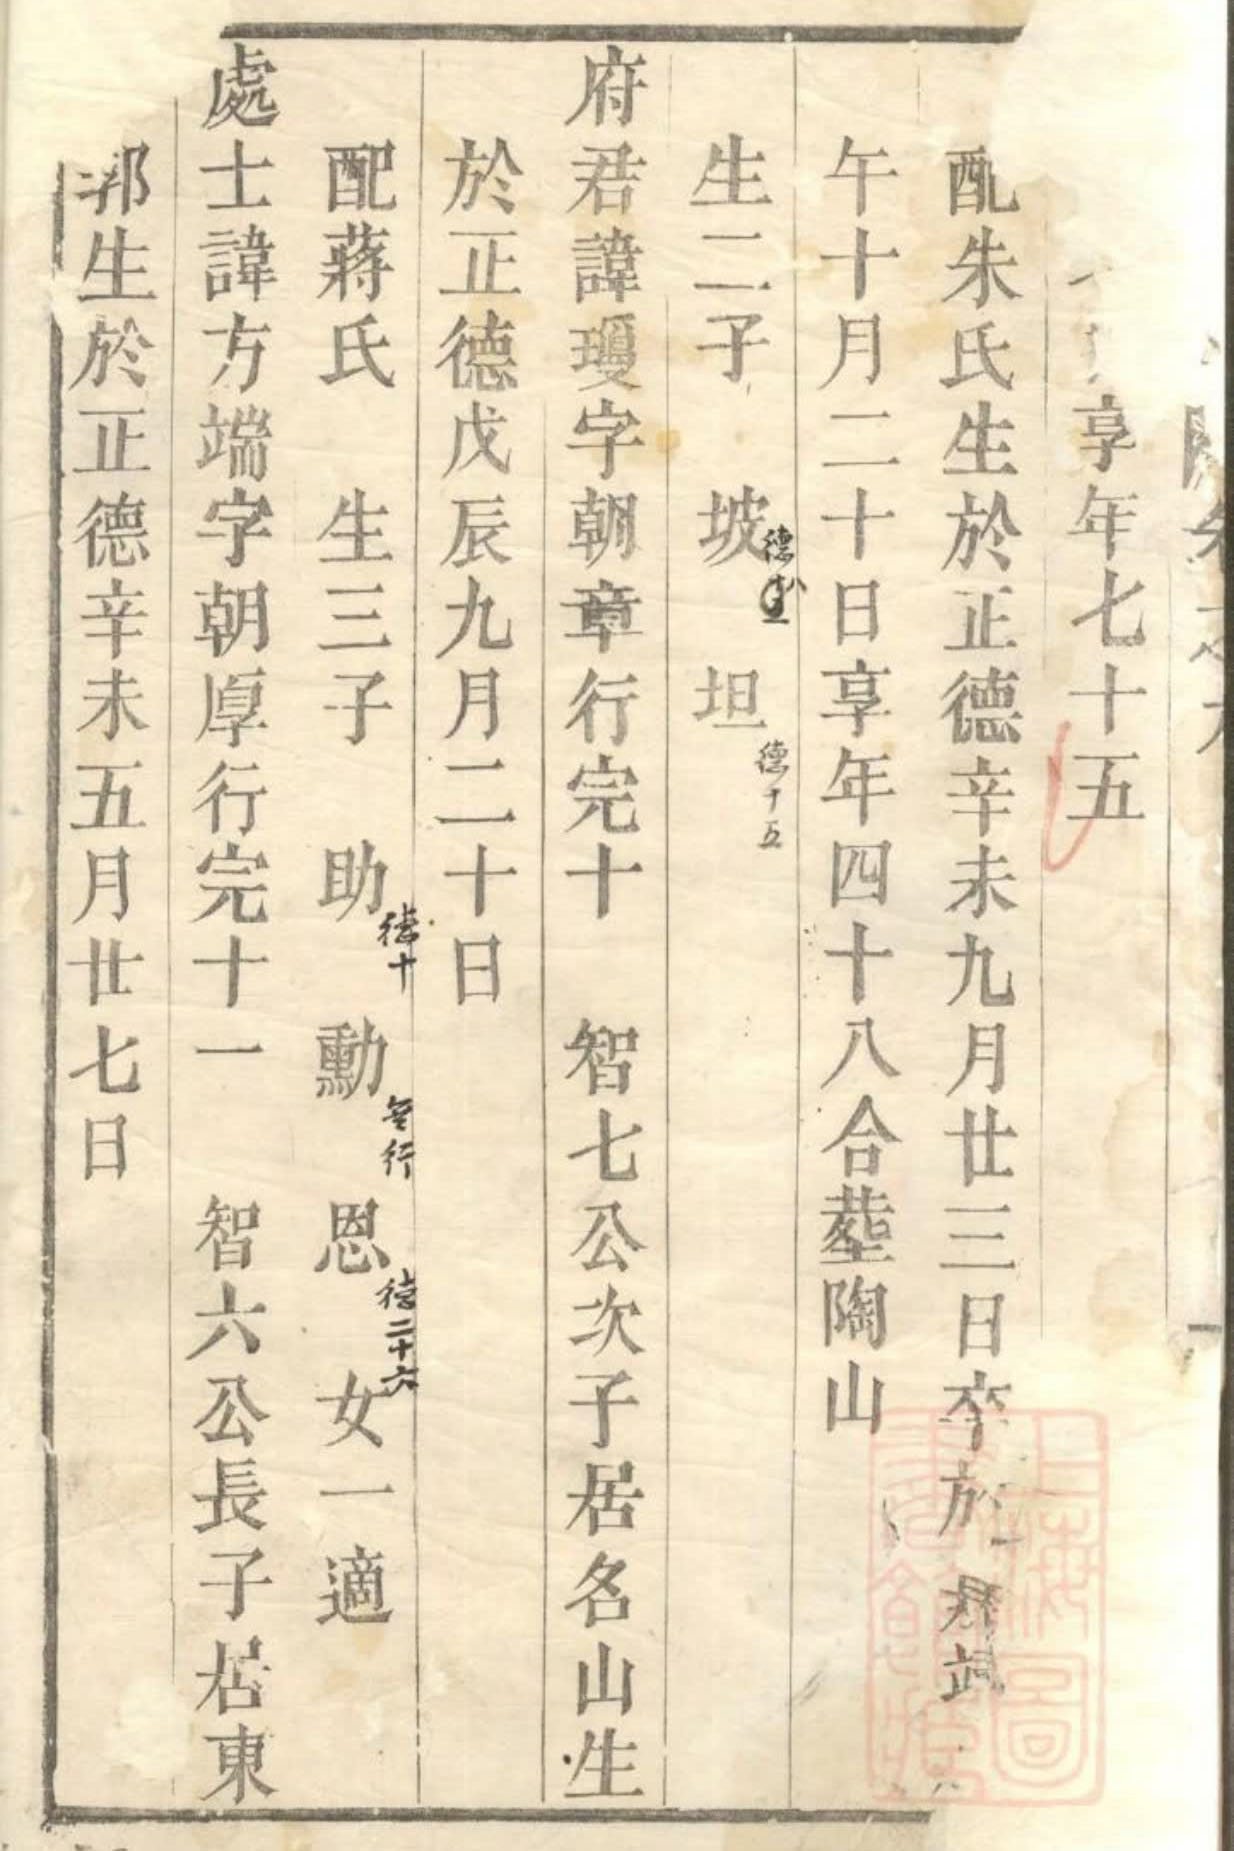 享年七十五
配朱氏生於正德辛未九月廿三日卒於
午十月二十日享年四十八合塟陶山
生二子 坡 坦德十五
府君諱瓊字朝章行完十 智七公次子居名山生
於正德戊辰九月二十日
配蔣氏 生三子 助德十 勳無行 恩德二十六 女一適
處士諱方端字朝厚行完十一 智六公長子居東
郭生於正德辛未五月廿七日
上海圖書館藏